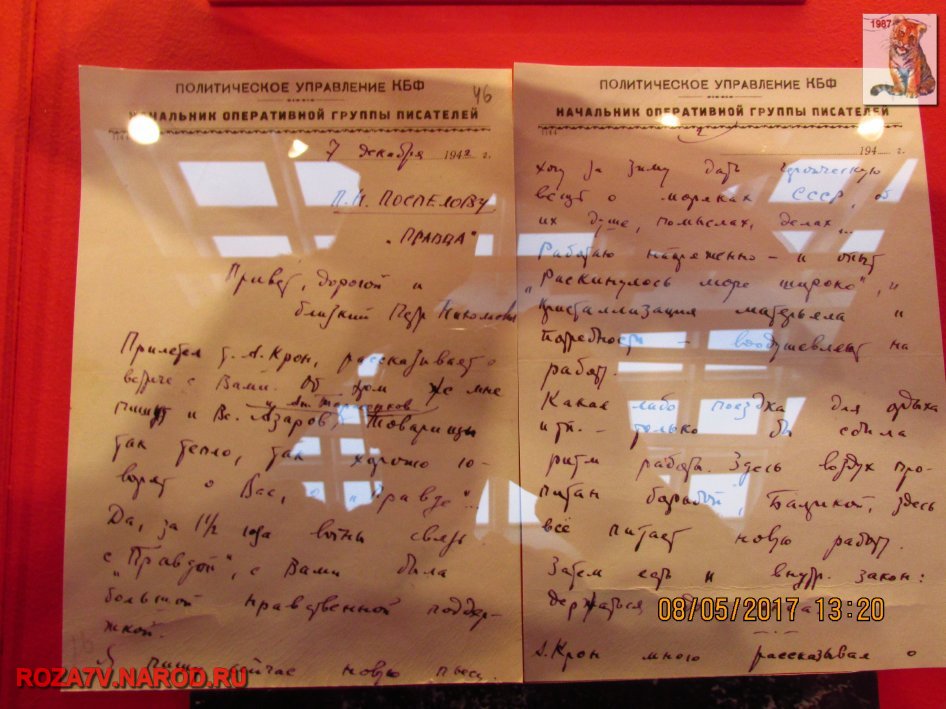 ПОЛИТИЧЕСКОЕ УПРАВЛЕНИЕ КБФ
46
НАЧАЛЬНИК ОПЕРАТИВНОЙ ГРУППЫ ПИСАТЕЛЕЙ
7 декабря 1942 г.
П.Н. ПОСПЕЛОВУ
"ПРАВДА"
Привет, дорогой и
близкий Петр Николаевич
Прилетел т. А. Крон, рассказывает о
встрече с Вами. Об этом же мне
пишут и Вс. Азаров Товарищи
так тепло, так хорошо го-
ворят о Вас, о "Правде"...
Да, за 1 1/2 года войны связь
с "Правдой", с Вами была
большой нравственной поддер-
жкой.
Я пишу сейчас новую пьесу.
ПОЛИТИЧЕСКОЕ УПРАВЛЕНИЕ КБФ
НАЧАЛЬНИК ОПЕРАТИВНОЙ ГРУППЫ ПИСАТЕЛЕЙ
194 г.
Хочу за зиму дать героическую
вещь о моряках СССР, об
их душе, помыслах, делах...
Работаю напряженно – и опыт
"Раскинулось море широко", и
кристаллизация матерьяла и
потребность – воодушевляют на
работу.
Какая либо поездка для отдыха
и т.п. – только бы сбила
ритм работы. Здесь воздух про-
питан борьбой, Балтикой, здесь
всё питает новую работу.
Затем есть и внутр. закон:
держаться
А. Крон много рассказывал о
1987
08/05/2017 13:20
ROZA7V.NAROD.RU